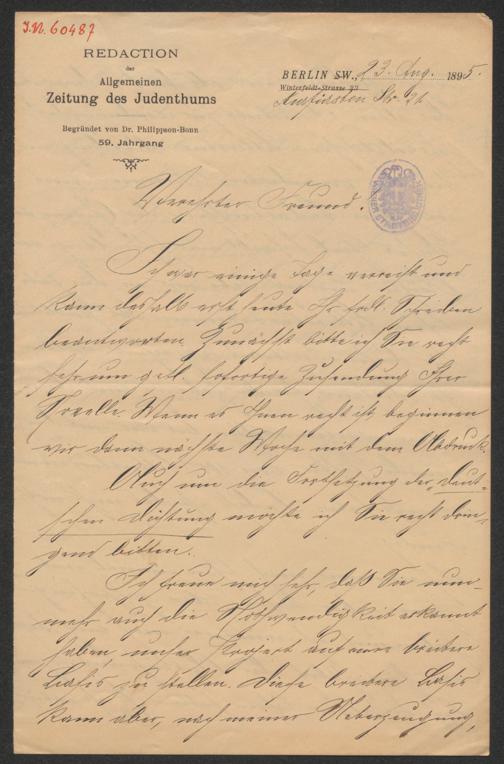 J.N. 60487
REDACTION
der
Allgemeinen
Zeitung des Judenthums
Begründet von Dr. Philippson-Bonn
59. Jahrgang
BERLIN SW., 23. Aug. 1895.
Winterfeldt-Strasse
Kurfürsten Str. 21
Verehrter Freund.
Ich war einige Tage verreist und
kann deshalb erst heute Ihr frdl. Schreiben
beantworten. Zunächst bitte ich Sie recht
sehr um gefl. sofortige Zusendung Ihrer
Novelle. Wenn es Ihnen recht ist, beginnen
wir dann nächste Woche mit dem Abdruck.
Auch um die Fortsetzung der "Deut-
schen Dichtung" möchte ich Sie recht drin-
gend bitten.
Ich freue mich sehr, daß Sie nun-
mehr auch die Nothwendigkeit erkannt
haben, unser Project auf eine breitere
Basis zu stellen. Diese breitere Basis
kann aber, nach meiner Ueberzeugung,